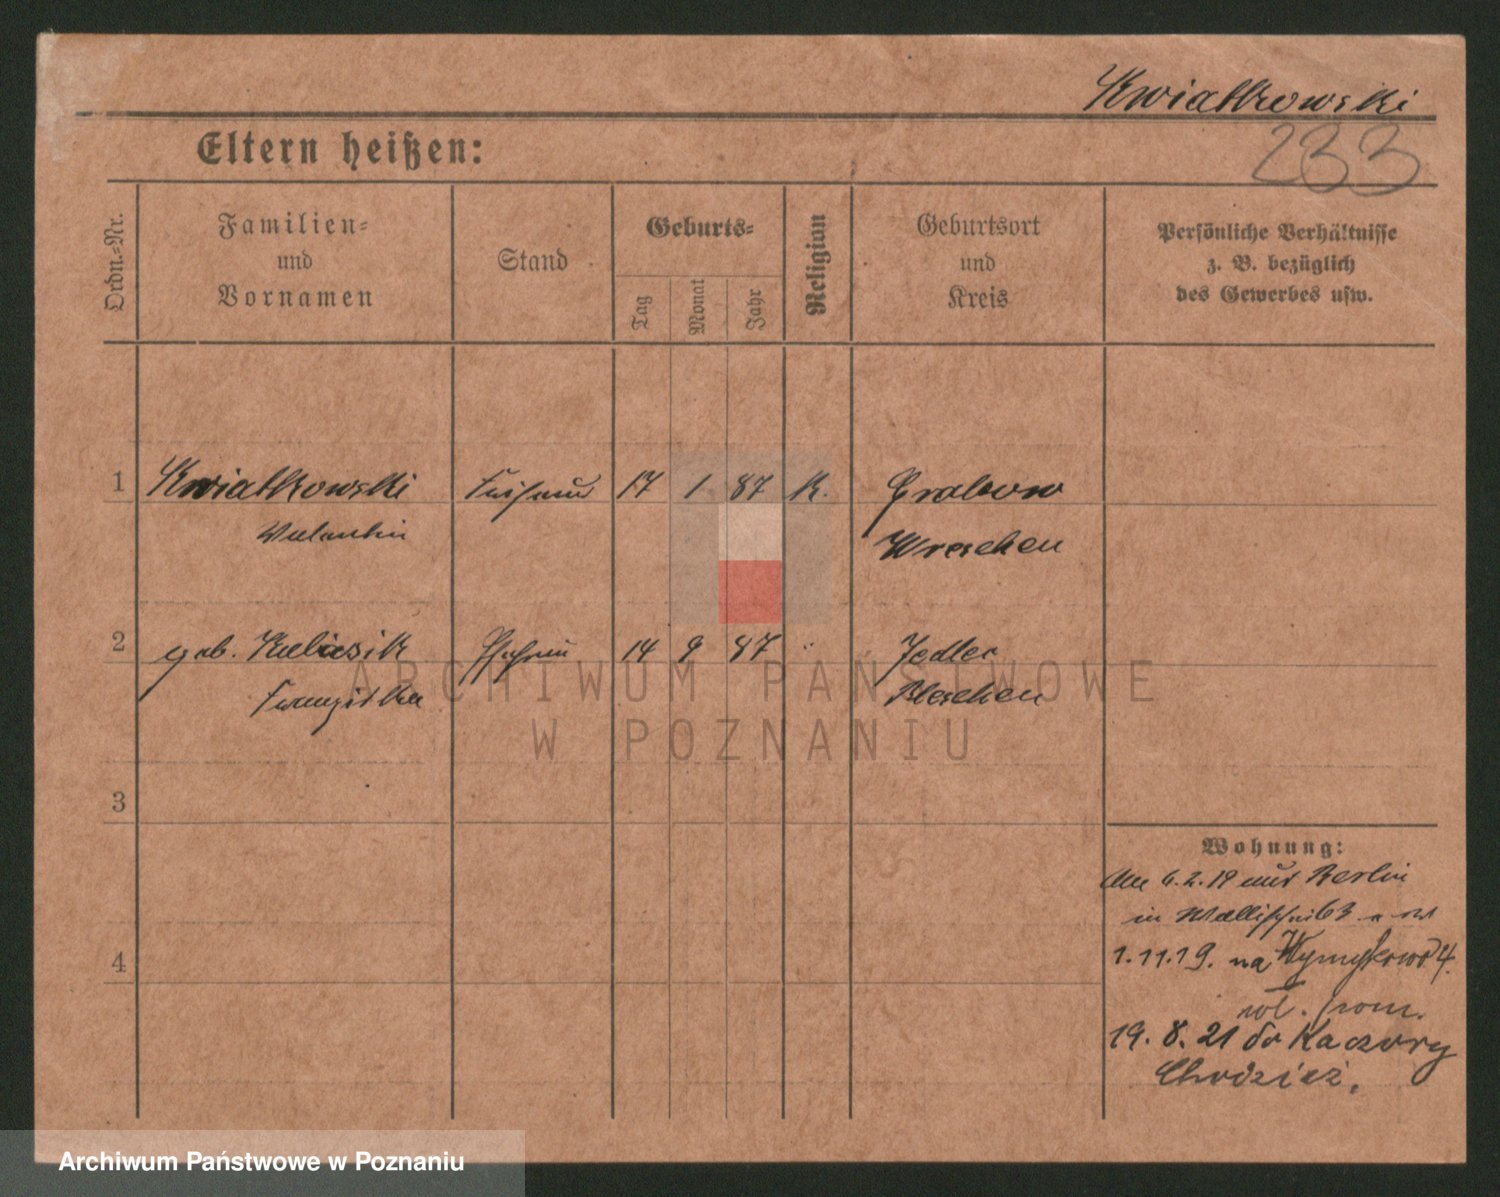 Kwiatkowski
233
Eltern heißen:
Ordn.-Nr.
Familien-
und
Vornamen
Stand
Geburts-
Tag
Monat
Jahr
Religion
Geburtsort
und
Kreis
Persönliche Verhältnisse
z. B. bezüglich
des Gewerbes usw.
1 Kwiatkowski 17 1 87 K. Grabow
Valentin Wreschen
2 geb. Kubiasik 14 9 87 Jedlec
Franziska Pleschen
ARCHIWUM PAŃSTWOWE
W POZNANIU
3
4
Wohnung:
6.2.19 aus Berlin
in
1.11.19. na 4.
19.8.21 do Kaczory
Chodzież.
Archiwum Państwowe w Poznaniu